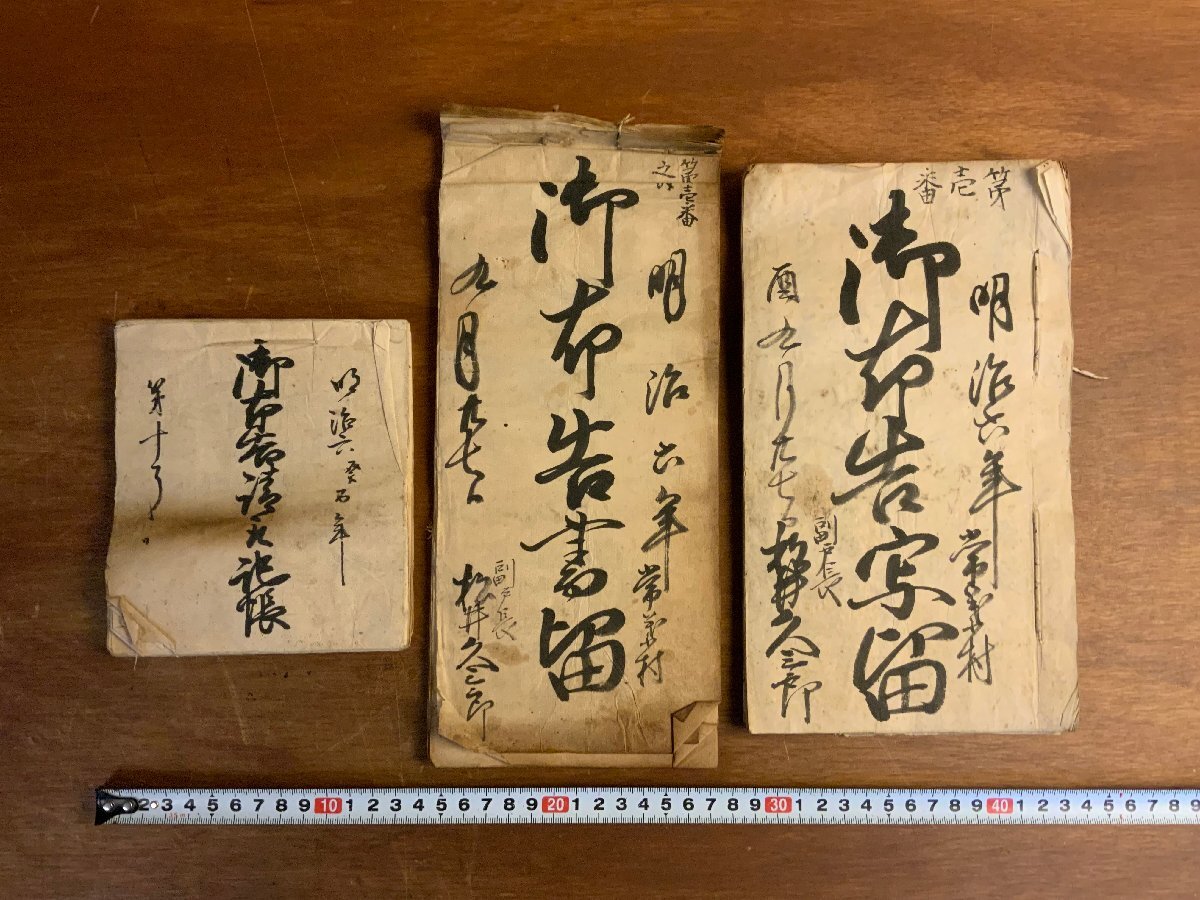 第壱番
明治六年 常
御布告写留
酉九月廿七日
副戸長
松井久三郎
第壱番
明治六年 常
村
御布告書留
九月廿七日
副戸長
松井久三郎
明治六癸酉年
御布告請
記帳
第十
2 3 4 5 6 7 8 9 10 1 2 3 4 5 6 7 8 9 20 1 2 3 4 5 6 7 8 9 30 1 2 3 4 5 6 7 8 9 40 1 2 3 4 5 6 7 8 9